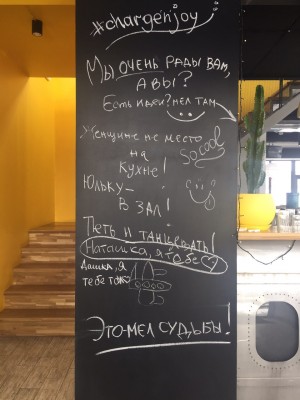 #chargenjoy
Мы очень рады вам,
а вы?
Есть идеи? мел там
Женщине не место
на
кухне!
So cool
Юльку –
в зал!
Петь и танцевать!
Наташка, я
Дашка, я
тебе тоже
Это-мел судьбы!